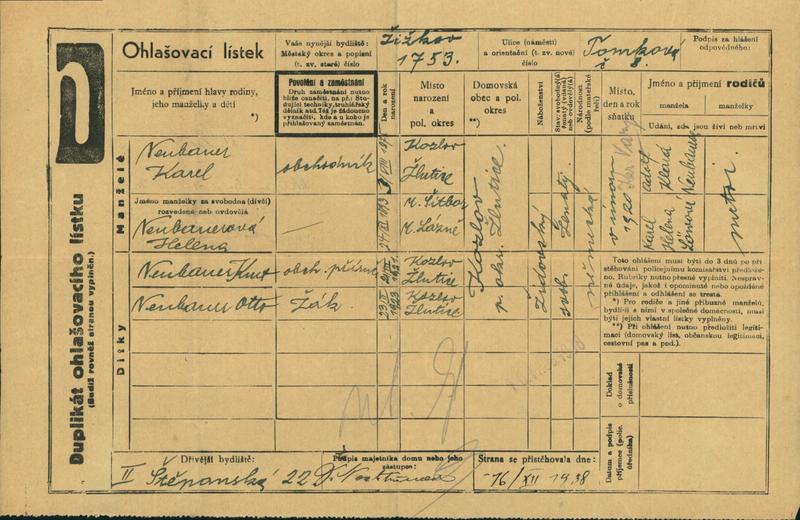 Duplikát ohlašovacího lístku
(Budiž rovněž stranou vyplněn.)
Ohlašovací lístek
Vaše nynější bydliště:
Městský okres a popisní
(t. zv. staré) číslo
Žižkov
1753.
Ulice (náměstí)
a orientační (t. zv. nové)
číslo
Tomková
č 8.
Podpis za hlášení
odpovědného:
Jméno a příjmení hlavy rodiny,
jeho manželky a dětí
*)
Povolání a zaměstnání
Druh zaměstnání nutno
blíže označiti, na př.: Stu-
dující techniky, truhlářský
dělník atd. Též je žádoucno
vyznačiti, kde a u koho je
přihlašovaný zaměstnán.
Den a rok
narození
Místo
narození
a
pol. okres
Domovská
obec a pol.
okres
**)
Náboženství
Stav: svobodný(á)
ženatý (vdaná)
neb ovdovělý(á)
Národnost
(podle mateřské
řeči)
Místo,
den a rok
sňatku
Jméno a příjmení rodičů
manžela
manželky
Udání, zda jsou živí neb mrtví
Manželé
Neubauer
Karel
obchodník
Kozlov
Žlutice
Jméno manželky za svobodna (dívčí)
rozvedené neb ovdovělá
Neubauerová
Helena
—
M. Lázně
Kozlov
p. okr. Žlutice
židovský
ženatý
svob.
německá
v únoru
1920
Karel
Adolf
Helena
Neubauer
mrtvi
Dítky
Neubauer Kurt
obch.
1921.
Kozlov
Žlutice
Neubauer Otto
žák
1923
Kozlov
Žlutice
Toto ohlášení musí býti do 3 dnů po při-
stěhování policejnímu komisařství předlože-
no. Rubriky nutno přesně vyplniti. Nespráv-
né údaje, jakož i opominuté nebo opožděné
přihlášení a odhlášení se trestá.
*) Pro rodiče a jiné příbuzné manželů,
bydlí-li s nimi v společné domácnosti, musí
býti jejich vlastní lístky vyplněny.
**) Při ohlášení nutno předložiti legiti-
maci (domovský list, občanskou legitimaci,
cestovní pas a pod.).
Doklad
o domovské
příslušnosti
Datum a podpis
příjemce (polic.
úředníka)
Dřívější bydliště:
II Štěpanská 22
Podpis majetníka domu nebo jeho
zástupce:
Strana se přistěhovala dne:
16/XII 1938